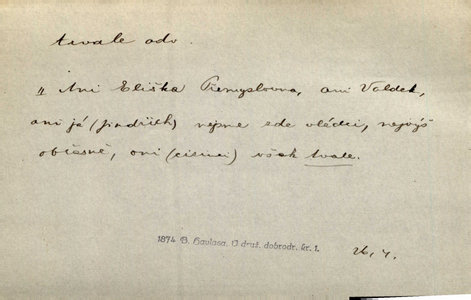 trvale adv.
„ Ani Eliška Přemyslovna, ani Valdek,
ani já (Jindřich) nejsme zde vládci, nejvýš
občasně, oni (cizinci) však trvale.
1874 B. Havlasa. V druž. dobrodr. kr. 1.
26, 4.